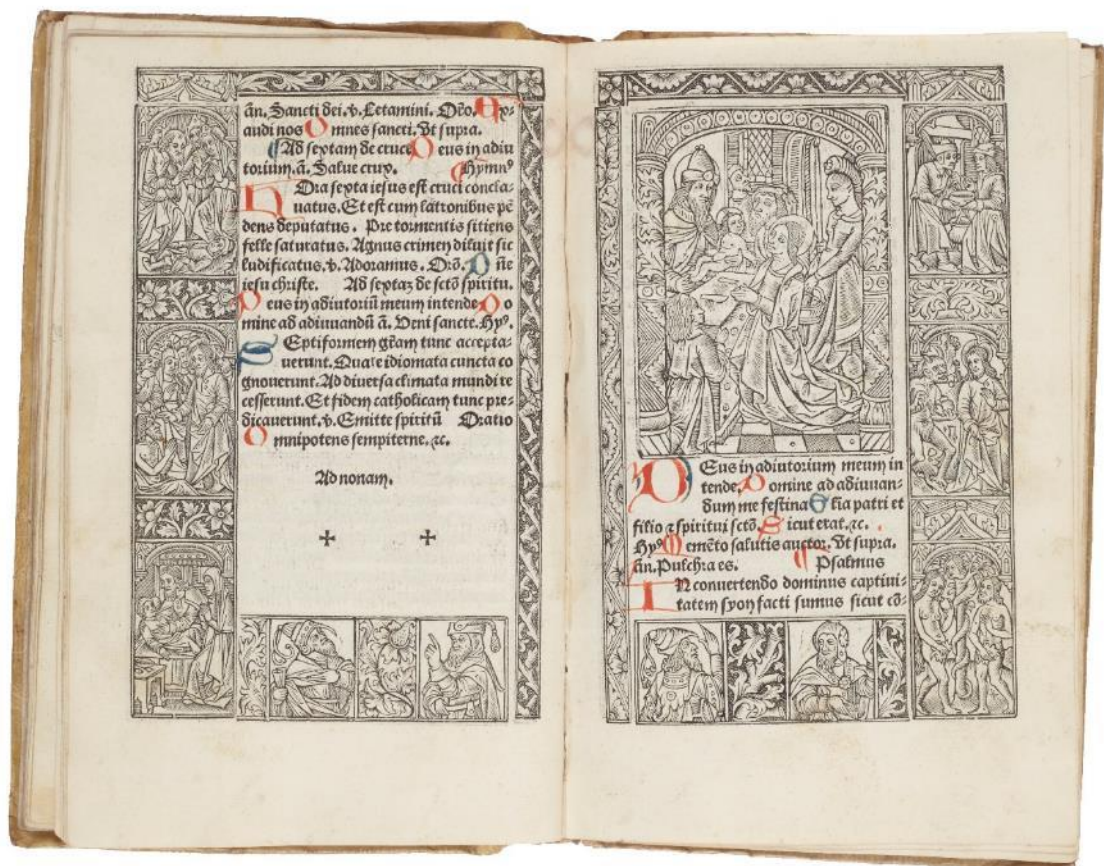 añ. Sancti dei. ꟟. Letamini. Oĩo. Ex-
audi nos Omnes sancti. Ut supra.
Ad septam de cruce Deus in adiu
torium. ã. Salue crux. Hymnꝰ
Hora septa iesus est cruci concla-
uatus. Et est cum latronibus pē
dens deputatus. Pre tormentis sitiens
felle saturatus. Agnus crimen diluit sic
ludificatus. ꟟. Adoramus. Orõ. Dñe
iesu christe. Ad septaꝫ de sctõ spiritu.
Deus in adiutoriũ meum intende Do
mine ad adiuuandũ ã. Veni sancte. Hyꝰ.
Septiformem gr̃am tunc accepta-
uerunt. Quare idiomata cuncta co
gnouerunt. Ad diuersa climata mundi re
cesserunt. Et fidem catholicam tunc pre-
dicauerunt. ꟟. Emitte spiritũ Oratio
Omnipotens sempiterne. ⁊c.
Ad nonam.
Deus in adiutorium meum in
tende. Domine ad adiuuan-
dum me festina Gl̃ia patri et
filio ⁊ spiritui sctõ Sicut erat. ⁊c.
Hyꝰ Memẽto salutis auctor. Ut supra.
añ. Pulchra es. Psalmus
In conuertendo dominus captiui-
tatem syon facti sumus sicut cõ-